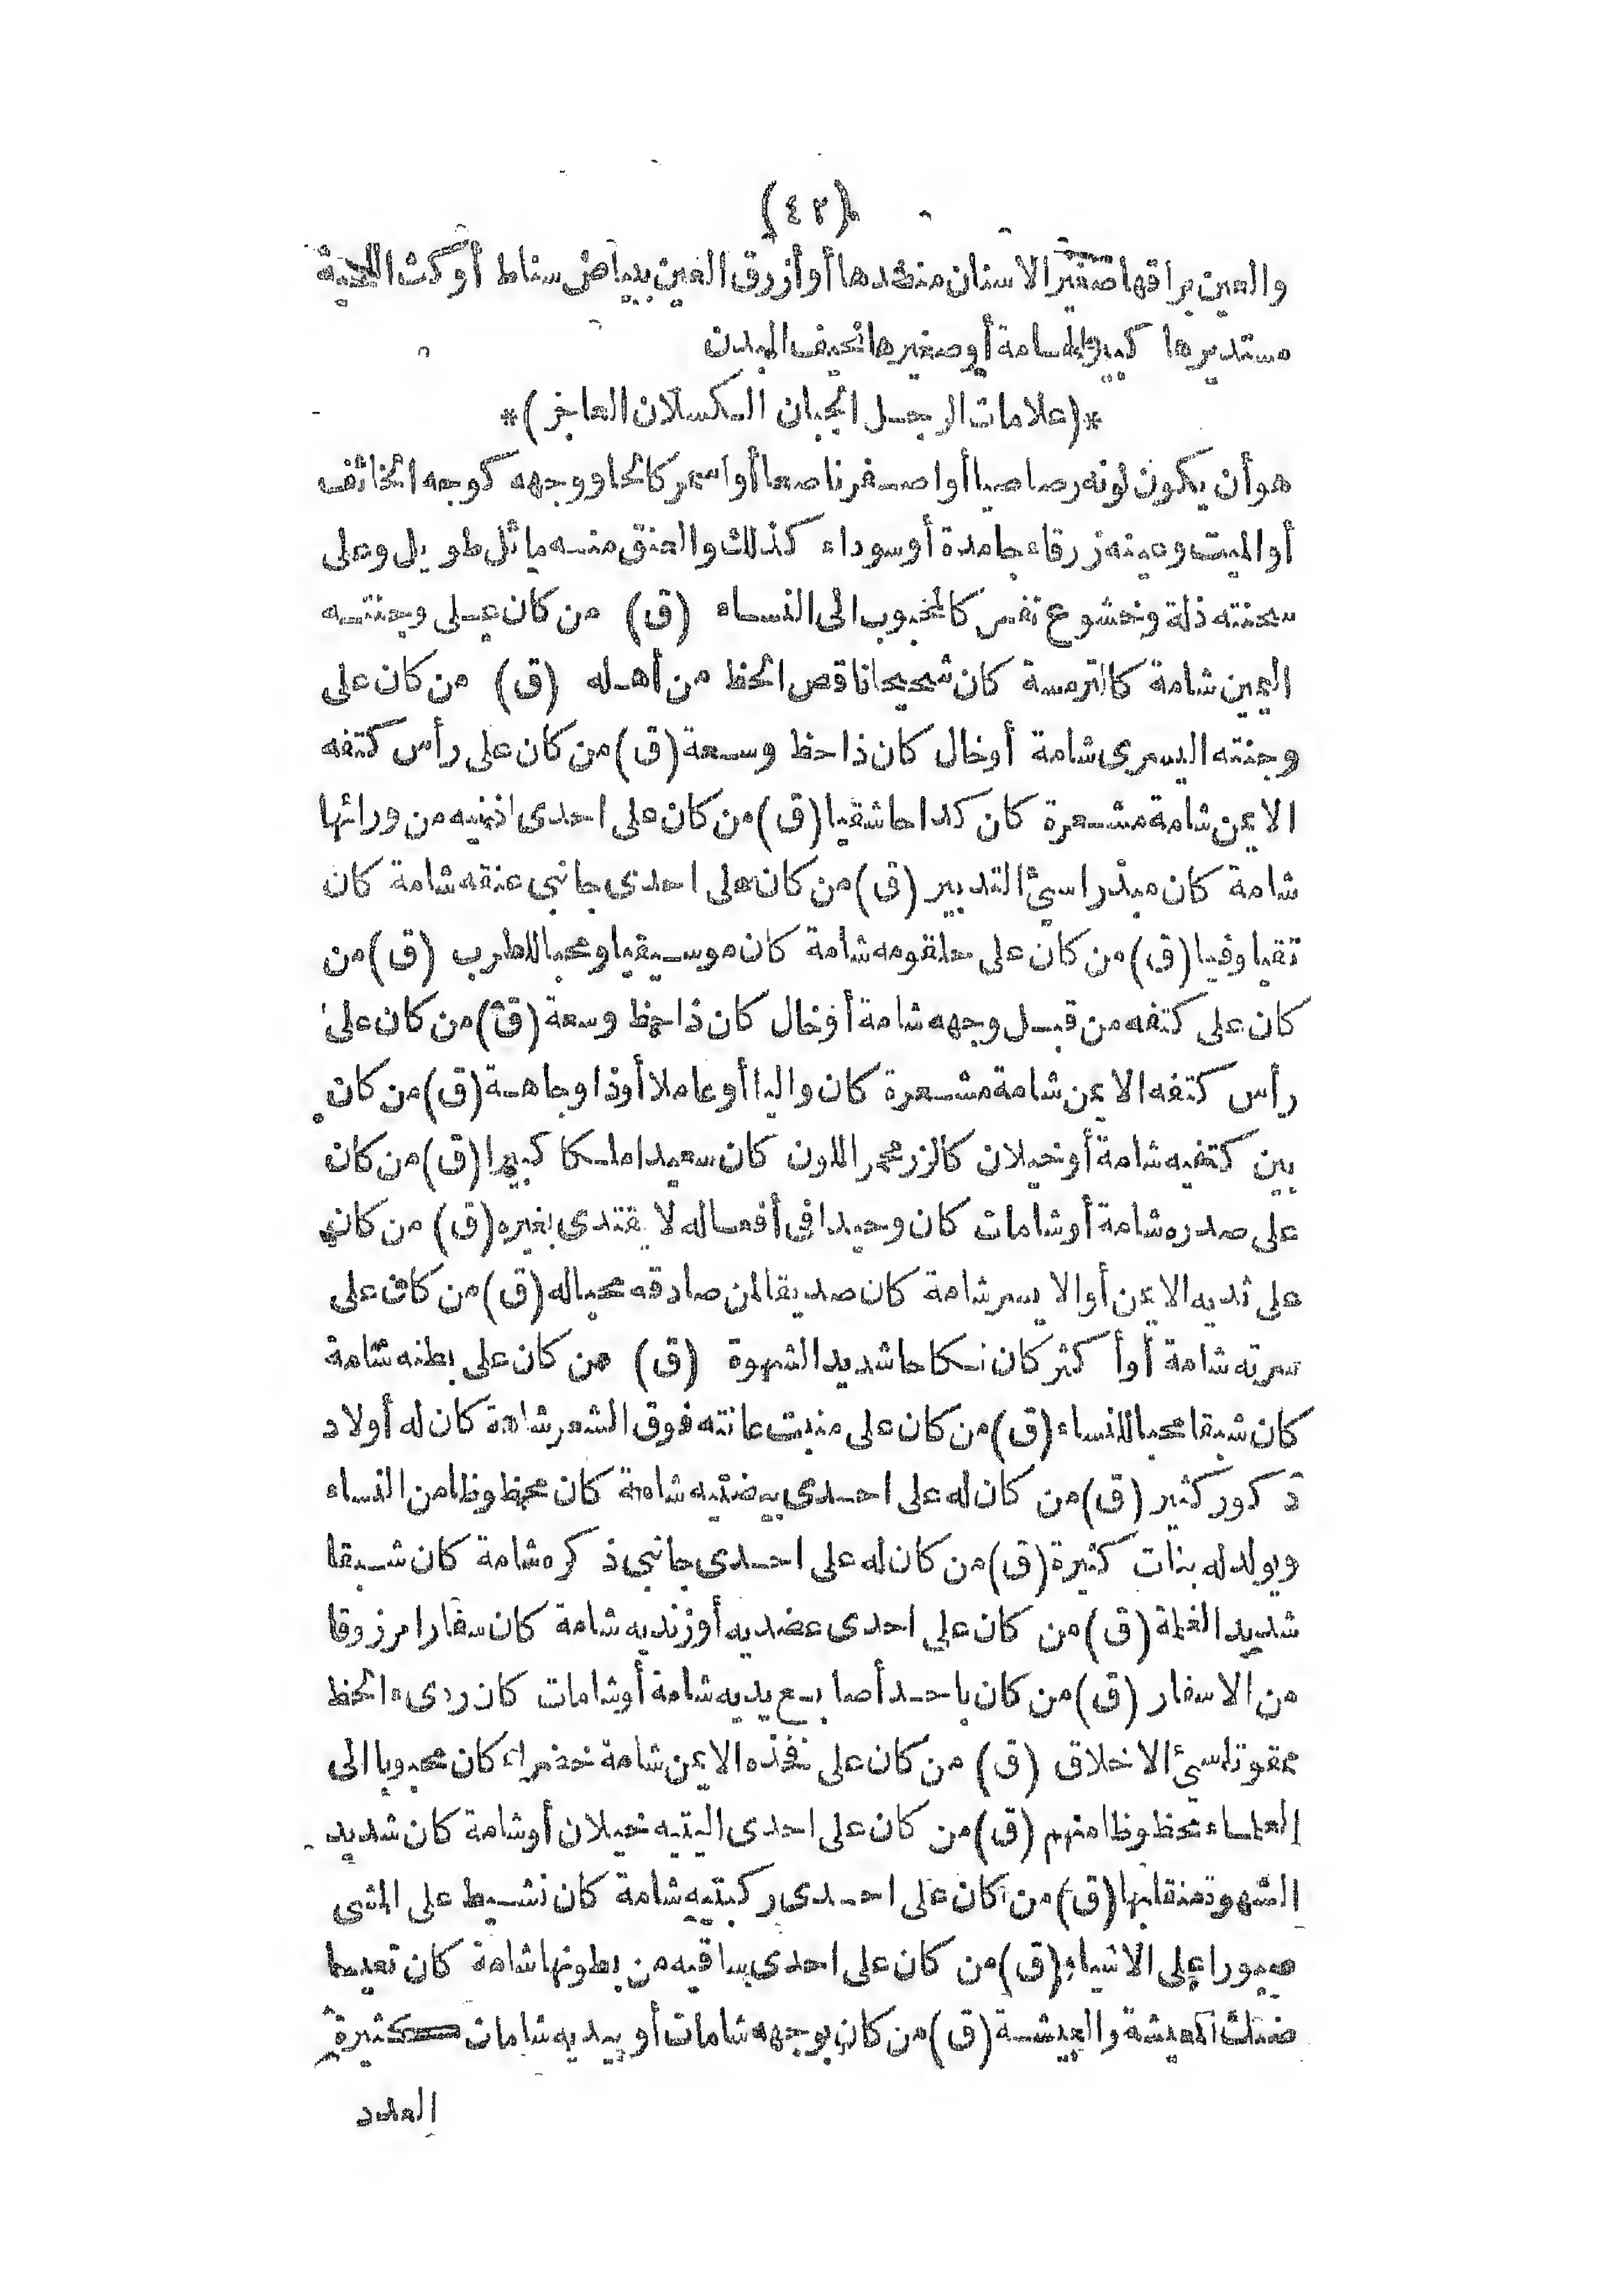 (٤٢)
والعين براقها صغير الاسنان منضدها أو أزرق العين ببياض سناط أو كث اللحية
مستديرها كبير الهامة أو صغيرها نحيف البدن
*(علامات الرجل الجبان الكسلان العاجز)*
هو أن يكون لونه رصاصيا أو اصفر ناصعا أو اسمر كالحا ووجهه كوجه الخائف
أو الميت وعينه زرقاء جامدة أو سوداء كذلك والعنق منه مائل طويل وعلى
سحنته ذلة وخشوع نفس كالمحبوب الى النساء (ق) من كان على وجنته
اليمين شامة كالترمسة كان شحيحا ناقص الحظ من أهله (ق) من كان على
وجنته اليسرى شامة أو خال كان ذا حظ وسعة (ق) من كان على رأس كتفه
الايمن شامة مشعرة كان كداحا شقيا (ق) من كان على احدى اذنيه من ورائها
شامة كان مبذرا سيئ التدبير (ق) من كان على احدى جانبى عنقه شامة كان
تقيا وفيا (ق) من كان على حلقومه شامة كان موسيقيا ومحبا للطرب (ق) من
كان على كتفه من قبل وجهه شامة أو خال كان ذا حظ وسعة (ق) من كان على
رأس كتفه الايمن شامة مشعرة كان واليا أو عاملا أو ذا وجاهة (ق) من كان
بين كتفيه شامة أو خيلان كالزر محمر اللون كان سعيدا ملكا كبيرا (ق) من كان
على صدره شامة أو شامات كان وحيدا فى أفعاله لا يقتدى بغيره (ق) من كان
على ثديه الايمن أو الايسر شامة كان صديقا لمن صادقه محبا له (ق) من كان على
سرته شامة أو أكثر كان نكاحا شديد الشهوة (ق) من كان على بطنه شامة
كان شبقا محبا للنساء (ق) من كان على منبت عانته فوق الشعر شامة كان له أولاد
ذكور كثير (ق) من كان له على احدى بيضتيه شامة كان محظوظا من النساء
ويولد له بنات كثيرة (ق) من كان له على احدى جانبى ذكره شامة كان شبقا
شديد الغلمة (ق) من كان على احدى عضديه أو زنديه شامة كان سفارا مرزوقا
من الاسفار (ق) من كان باحد أصابع يديه شامة أو شامات كان ردىء الحظ
ممقوتا سيئ الاخلاق (ق) من كان على فخذه الايمن شامة خضراء كان محبوبا الى
العلماء محظوظا منهم (ق) من كان على احدى اليتيه خيلان أو شامة كان شديد
الشهوة منقابها (ق) من كان على احدى ركبتيه شامة كان نشيط على المشى
صبورا على الاشياء (ق) من كان على احدى ساقيه من بطونها شامة كان تعيسا
ضنك المعيشة والعيشة (ق) من كان بوجهه شامات أو بيديه شامات كثيرة
العدد